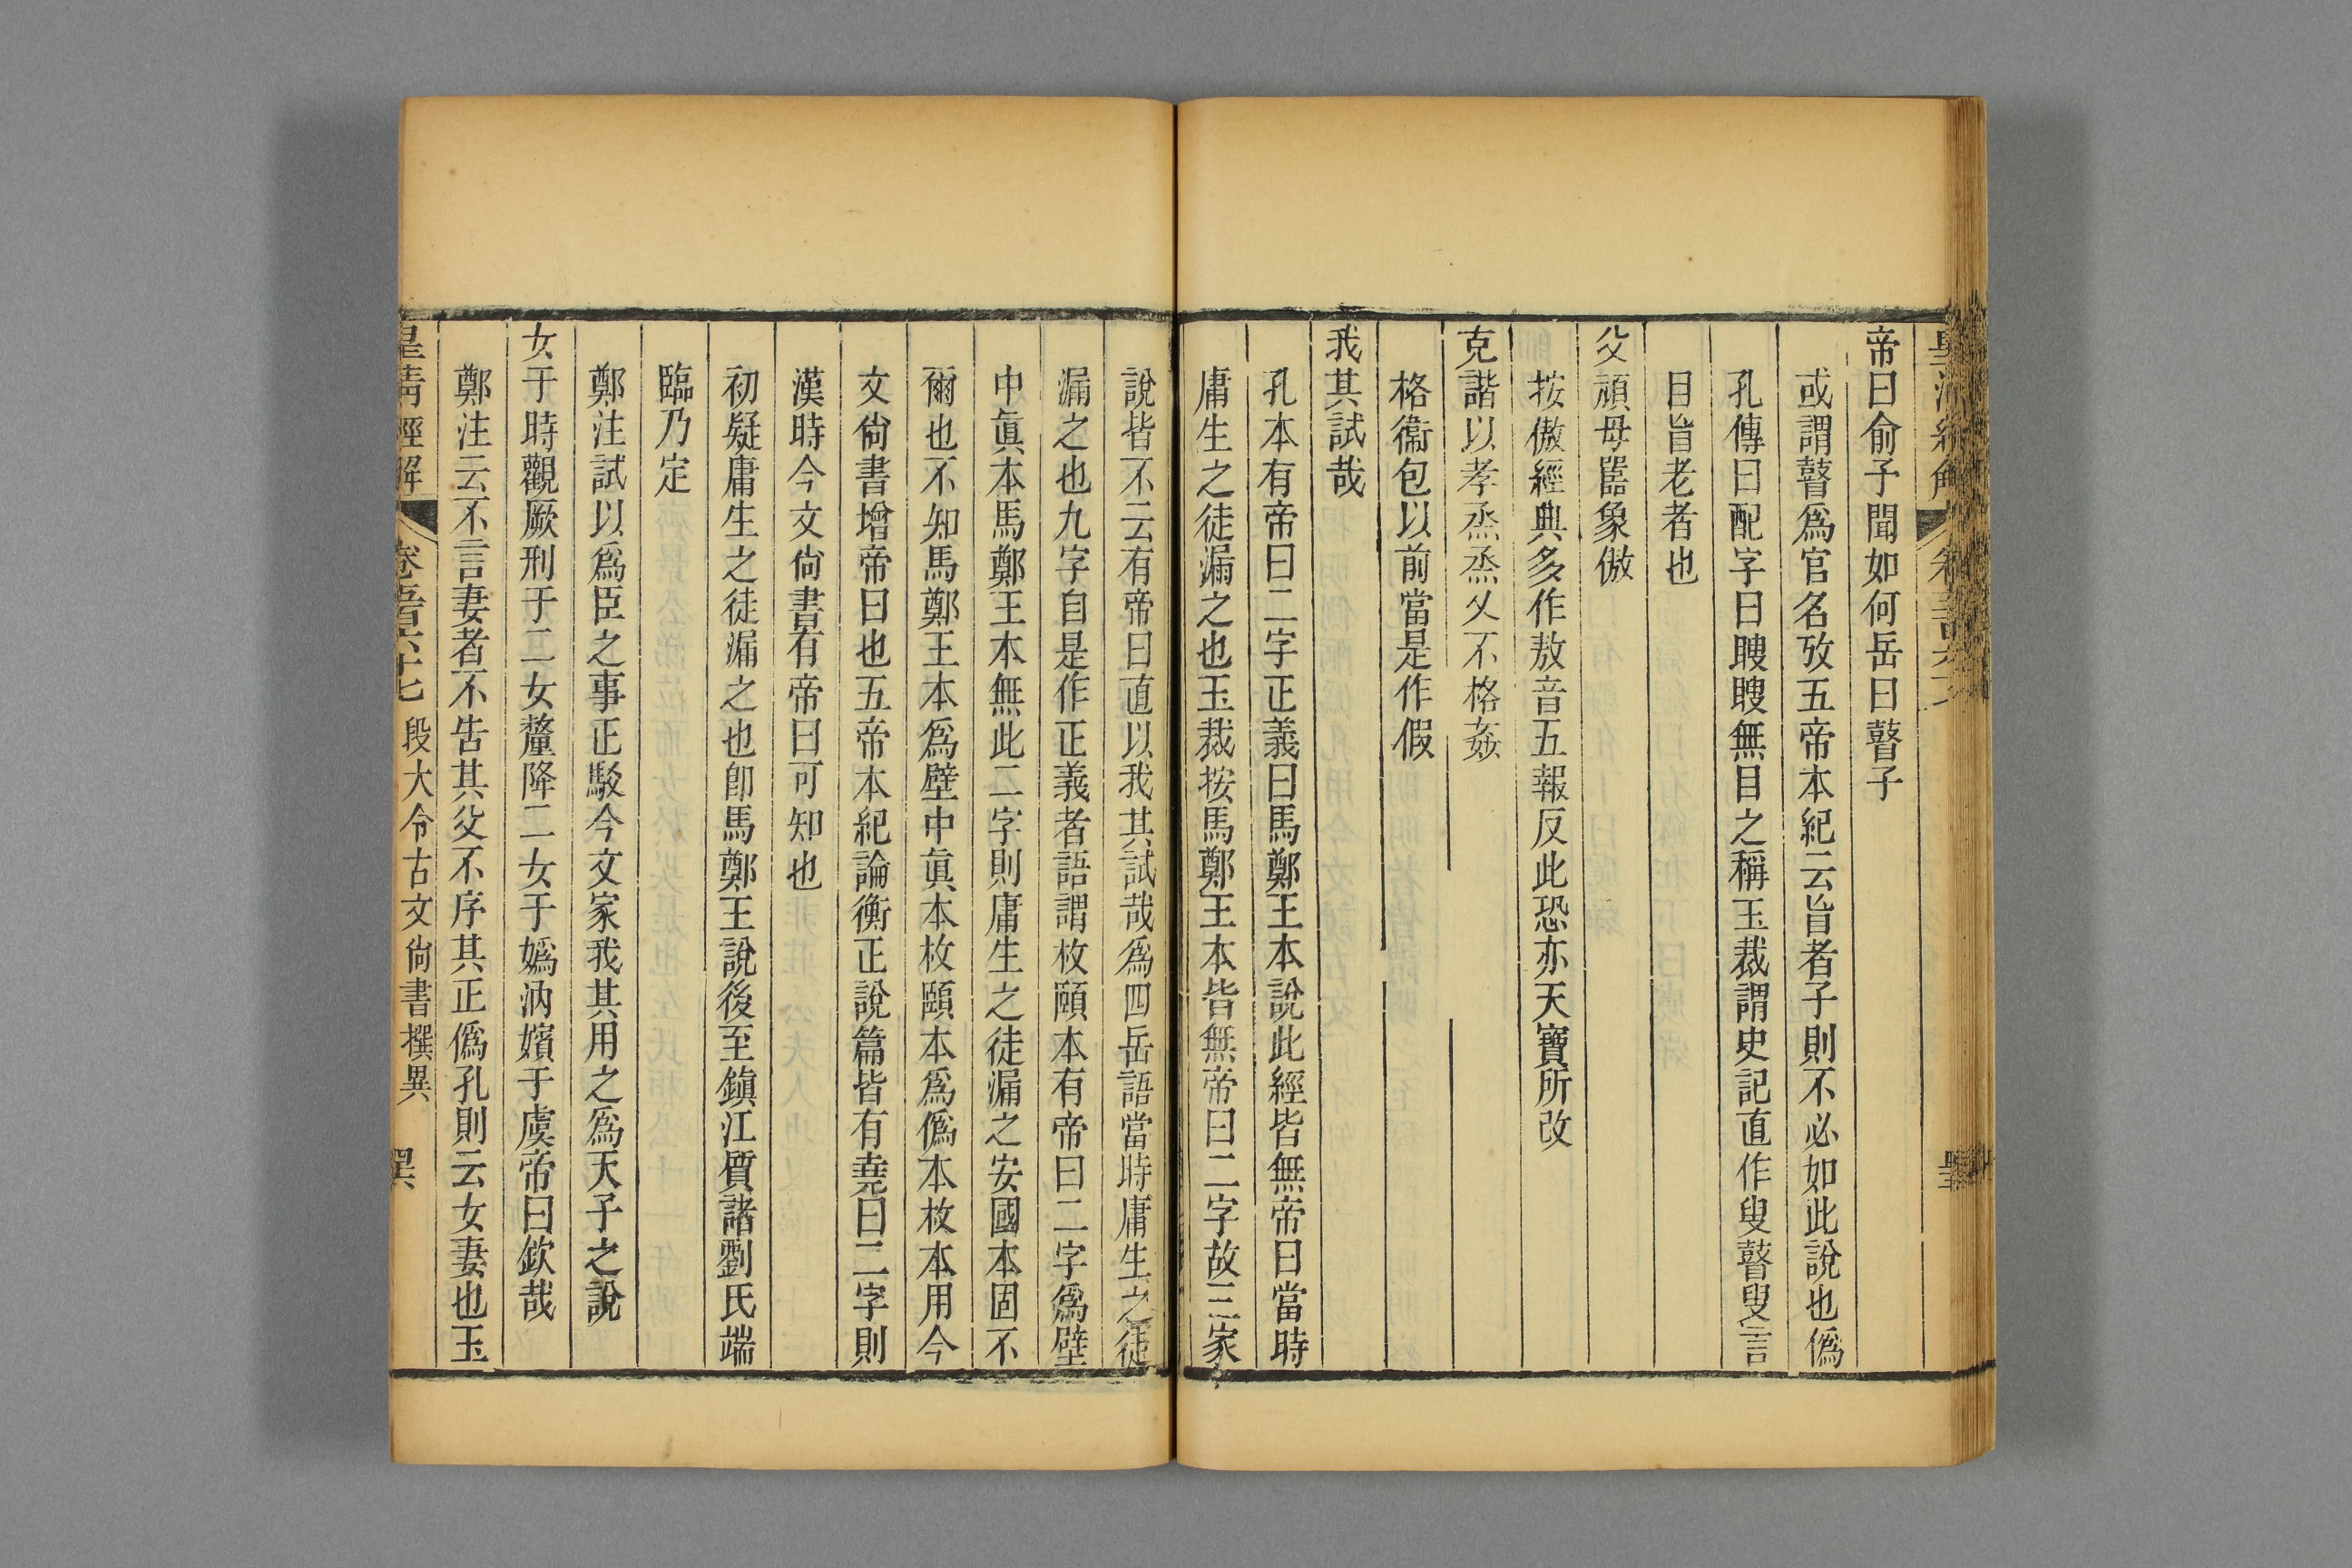 帝曰俞予聞如何岳曰瞽子
或謂瞽爲官名攷五帝本紀云盲者子則不必如此說也僞
孔傳曰配字曰瞍瞍無目之稱玉裁謂史記直作叟瞽叟言
目盲老者也
父頑母嚚象傲
按傲經典多作敖音五報反此恐亦天寶所改
克諧以孝烝烝乂不格姦
格衞包以前當是作假
我其試哉
孔本有帝曰二字正義曰馬鄭王本說此經皆無帝曰當時
庸生之徒漏之也玉裁按馬鄭王本皆無帝曰二字故三家
說皆不云有帝曰直以我其試哉爲四岳語當時庸生之徒
漏之也九字自是作正義者語謂枚頤本有帝曰二字爲壁
中眞本馬鄭王本無此二字則庸生之徒漏之安國本固不
爾也不知馬鄭王本爲壁中眞本枚頤本爲僞本枚本用今
文尙書增帝曰也五帝本紀論衡正說篇皆有堯曰二字則
漢時今文尙書有帝曰可知也
初疑庸生之徒漏之也卽馬鄭王說後至鎭江質諸劉氏端
臨乃定
鄭注試以爲臣之事正駁今文家我其用之爲天子之說
女于時觀厥刑于二女釐降二女于嬀汭嬪于虞帝曰欽哉
鄭注云不言妻者不告其父不序其正僞孔則云女妻也玉
皇淸經解 卷五百六十七 段大令古文尙書撰異 異